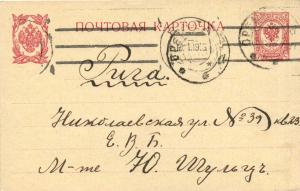 ПОЧТОВАЯ КАРТОЧКА
Рига.
Николаевская ул № 39 кв.23
Е. В. Б.
М-те Ю. Шульцъ.